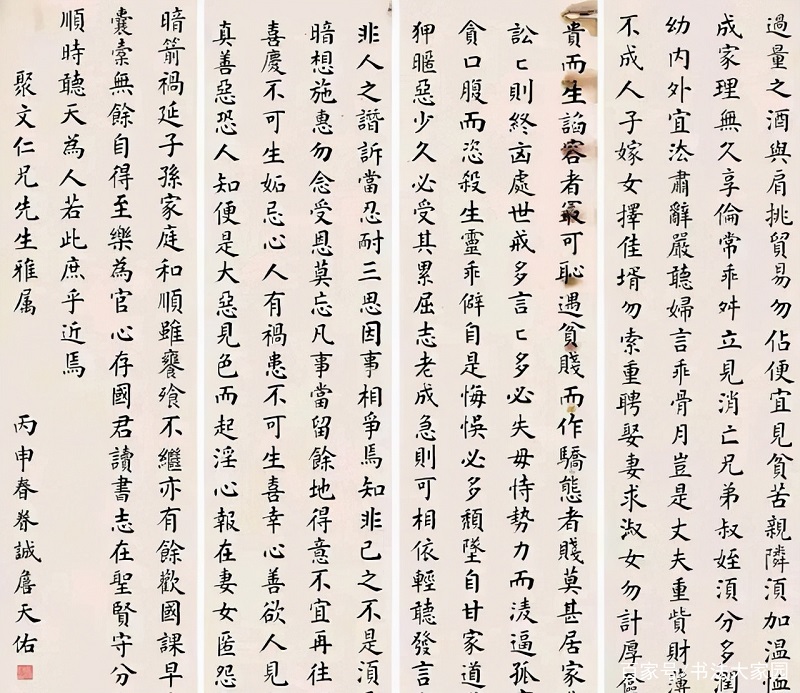 過量之酒與肩挑貿易勿佔便宜見貧苦親隣須加温恤
成家理無久享倫常乖舛立見消亡兄弟叔姪須分多潤
幼内外宜法肅辭嚴聽婦言乖骨月豈是丈夫重貲財薄
不成人子嫁女擇佳壻勿索重聘娶妻求淑女勿計厚奩
貴而生諂容者最可恥遇貧賤而作驕態者賤莫甚居家
訟匕則終凶處世戒多言匕多必失毋恃勢力而凌逼孤
貪口腹而恣殺生靈乖僻自是悔悞必多頹墮自甘家道
狎暱惡少久必受其累屈志老成急則可相依輕聽發言
非人之譖訴當忍耐三思因事相爭焉知非己之不是須
暗想施惠勿念受恩莫忘凡事當留餘地得意不宜再往
喜慶不可生妬忌心人有禍患不可生喜幸心善欲人見
真善惡恐人知便是大惡見色而起淫心報在妻女匿怨
暗箭禍延子孫家庭和順雖饔飧不繼亦有餘歡國課早
囊橐無餘自得至樂為官心存國君讀書志在聖賢守分
順時聽天為人若此庶乎近焉
聚文仁兄先生雅属 丙申春眷誠詹天佑
百家号/书法大家园